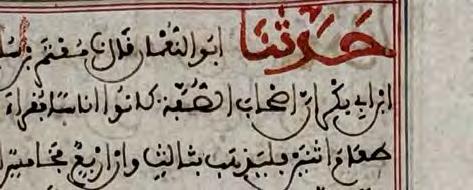 حدثنا ابو النعمان قال نا معتمر بن
ابن ابي بكر ان اصحاب الصفة كانوا اناسا فقراء
طعام اثنين فليذهب بثالث وان اربع فخامس